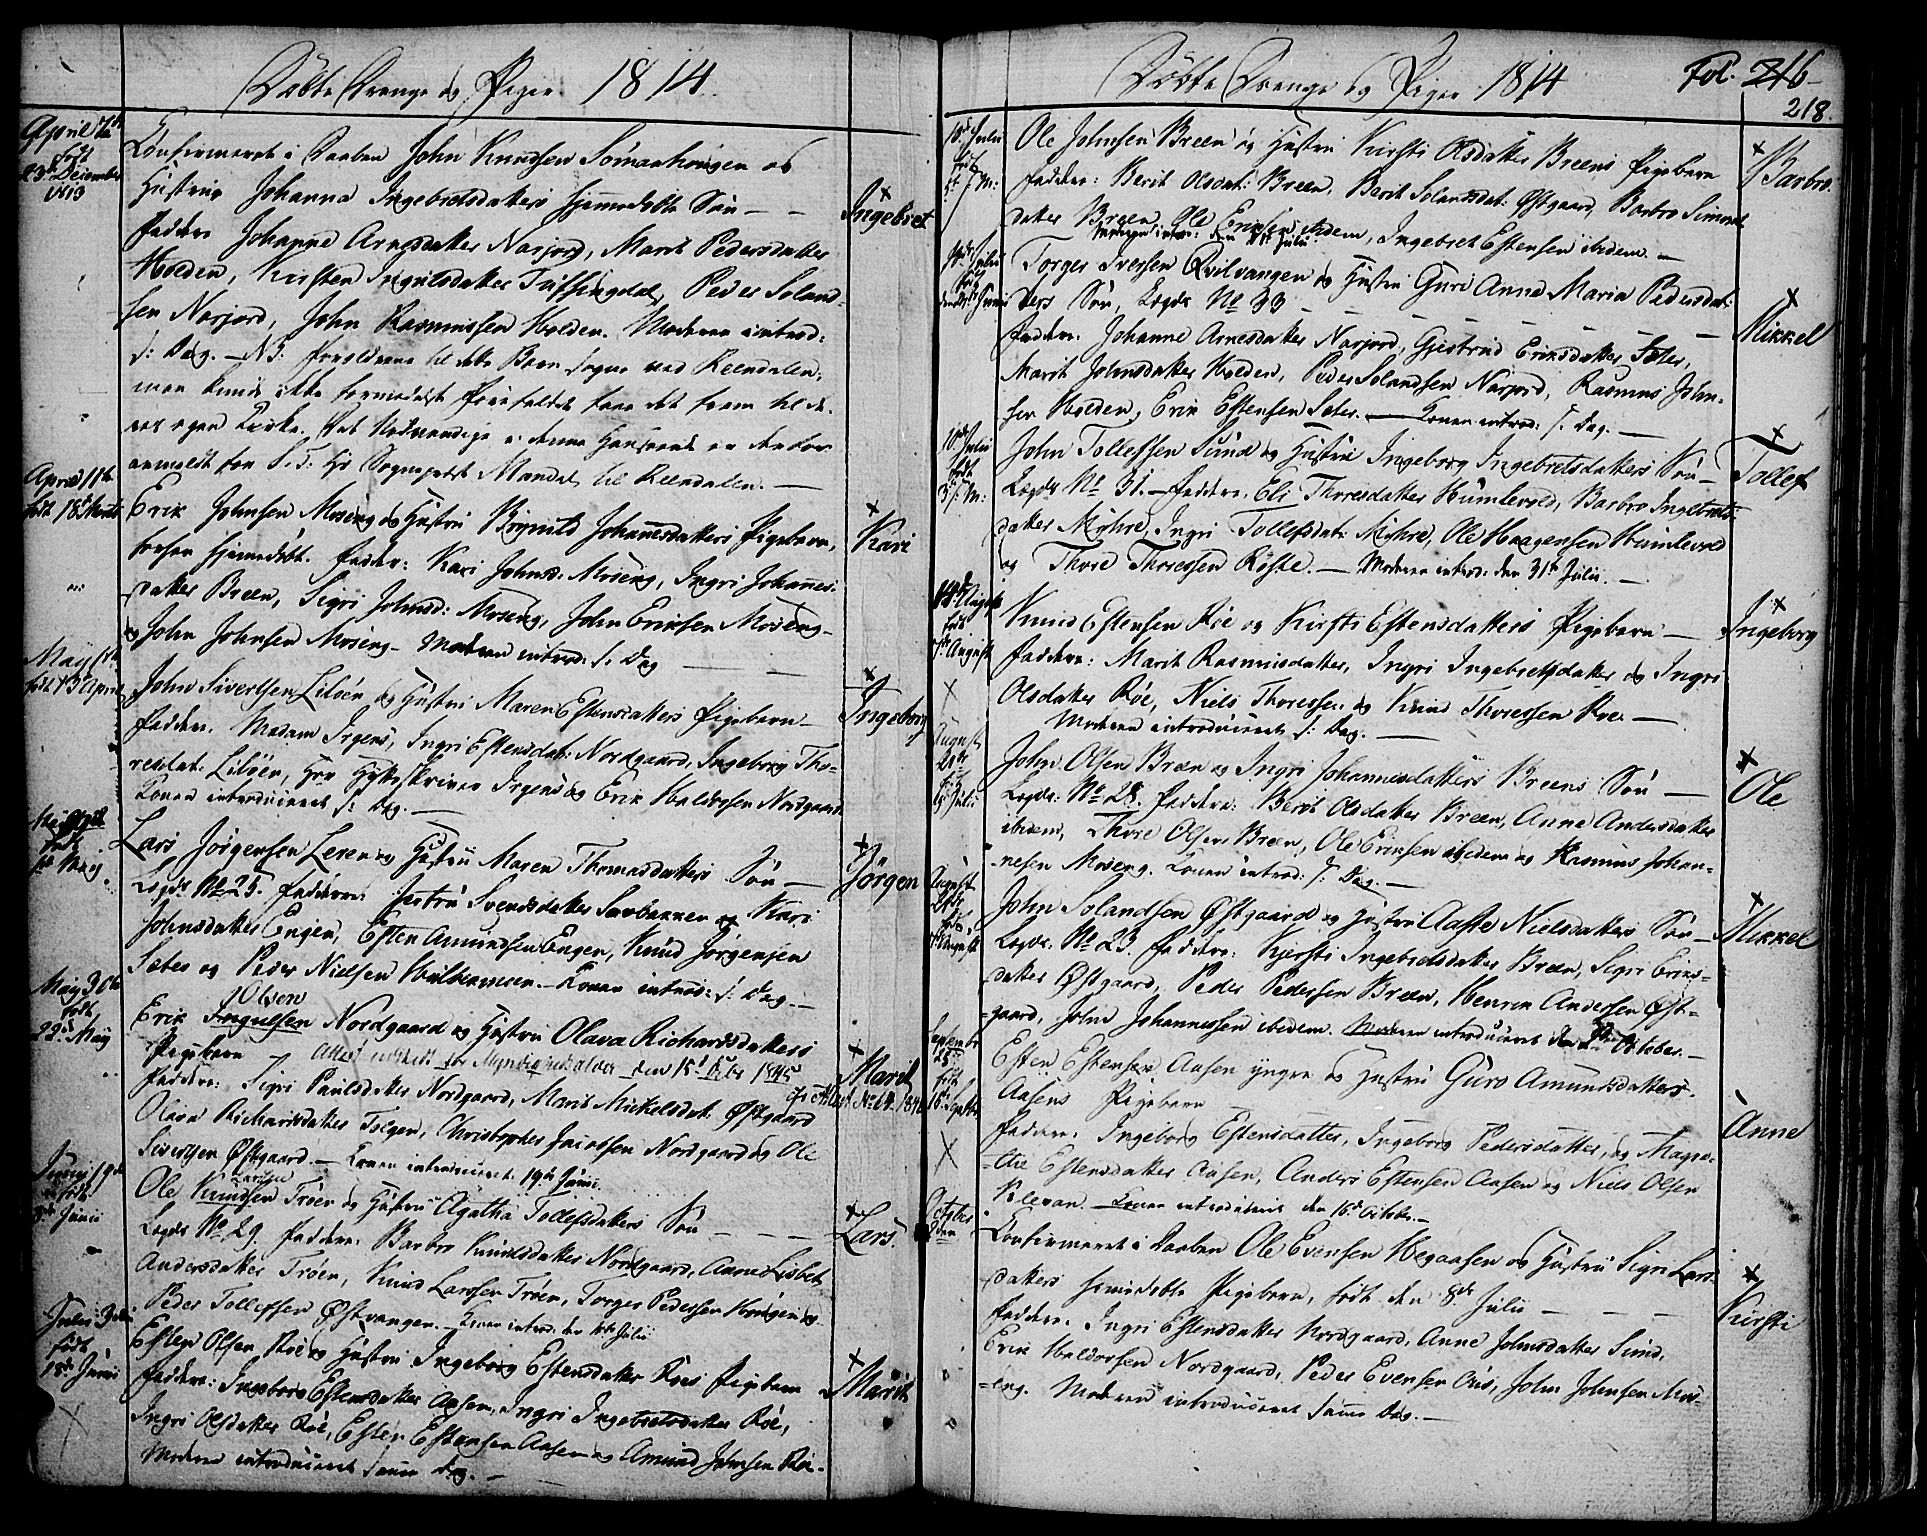 Döbte Drenge og Piger 1814.
April 7de
födt
23de December
1813
Confirmeret i Daaben John Knudsen Sömaahougen og
Hustrue Johanna Ingebretsdatters hjemmedöbte Sön — —
Ingebret
Faddere Johanne Arnesdatter Narjord, Marit Pedersdatter
Holden, Kirsten Ingulsdatter Tuffsingdal, Peder Soland-
sen Narjord, John Rasmussen Holden. Moderen introd:
s: Dag. — NB: Forældrene til dette Barn
man kunde ikke formedelst faae det frem til de-
res egen Kirke. Det
anmeldt for S. T: Hr Sognepræst Mandal til Reendalen. —
April 11te
födt 18de Marts
Erik Johnsen Moseng og Hustru Ragnild Johannesdatters Pigebarn,
Kari
hjemmedöbt. Fadder: Kari Johnsd: Moseng, Ingri Johannes-
datter Breen, Sigri Johnsd: Moseng, John Eriksen Moseng
og John Johnsen Moseng — Moderen introd: s: Dag —
May 1te
födt 13 April
John Sivertsen Liløen og Hustru Maren Estensdatters Pigebarn —
Ingeborg
Faddere. Madam Irgens, Ingri Estensdat: Nordgaard, Ingeborg Tho-
resdat: Liløen, Hr Hytteskriver Irgens og Erik Haldorsen Nordgaard
Konen introduceret s: Dag. —
födt
May
Lars Jörgensen Leren og Hustru Maren Thomasdatters Sön —
Jörgen
Lægds No 25. Faddere: Svendsdatter Sævbakken og Kari
Johnsdatter Engen, Esten Amundsen Engen, Knud Jörgensen
Sæter og Peder Nielsen . Konen introd: s: Dag. —
May 30te
födt
22de May
Olsen
Erik Ingulfsen Nordgaard og Hustru Olava Richardsdatters
Pigebarn — Attest indsendt for Myndighedsalder den 15de 1845
Marit
Attest No 64. 1846
Faddere: Sigri Paulsdatter Nordgaard, Marit Mickelsdat: Östgaard
Olava Richardsdatter Tolgen, Christopher Jacobsen Nordgaard og Ole
Sivertsen Östgaard. — Konen introduceret 19de Junii
Junij 19de
födt
Junii
Larsen
Ole Knudsen Tröen og Hustru Agatha Tollefsdatters Sön — — —
Lars.
Lægds No 29. Faddere: Barbro Knudsdatter Nordgaard, Anne Lisbet
Andersdatter Tröen, Knud Larssen Tröen, Torger Pedersen Hougen og
Peder Tollefsen Östvangen. — Konen introd: den Julii
Julii 3die
födt
18de Junii
Esten Olsen Röe og Hustru Ingeborg Estensdatter Röes Pigebarn
Marit
Faddere: Ingeborg Estensdatter Aasen, Ingri Ingebretsdatter Röe,
Ingri Olsdatter Röe, Esten Estensen Aasen og Amund Johnsen Röe.
Moderen introduceret samme Dag. —
Döbte Drenge og Piger 1814
Fol. 216
218.
10de Julii
födt
M:
Ole Johnsen Breen og Hustru Kirsti Olsdatter Breens Pigebarn
Barbro
Faddere: Berit Olsdat: Breen, Berit Solandsdat: Östgaard, Barbro Simens
datter Breen, Ole Eriksen ibidem, Ingebret Estensen ibidem. —
Moderen introd: den Julii
Julii
födt
Junii
Torger Iversen Qvilvangen og Hustru Guri Anna Maria Pedersdat-
ters Sön, Lægds No 33 — — — — — —
Mikkel
Faddere. Johanne Arnesdatter Narjord, Gjertrud Eriksdatter Sæter,
Marit Johnsdatter Holden, Peder Solandsen Narjord, Rasmus John-
sen Holden, Erik Estensen Sæter. — Konen introd: s: Dag. —
10de Julii
födt
M:
John Tollefsen Sund og Hustru Ingeborg Ingebretsdatters Sön —
Tollef
Lægds No 31. — Faddere. Eli Thoresdatter Humlevold, Barbro Ingebrets-
datter Myhre, Ingri Tollefsdat: Myhre, Ole Haagensen Humlevold
og Thore Thoresen Röste. — Moderen introd: den 31te Julii. —
14de August
födt
August
Knud Estensen Röe og Kirsti Estensdatters Pigebarn —
Ingeborg
Faddere: Marit Rasmusdatter, Ingri Ingebretsdatter og Ingri
Olsdatter Röe, Niels Thoressen og Knud Thoressen Röe. —
Moderen introduceret s: Dag. —
August
födt
Julii
John Olsen Breen og Ingri Johannesdatters Breens Sön —
Ole
Lægds: No 28. Faddere: Berit Olsdatter Breen, Anne Andersdatter
ibidem, Thore Olsen Breen, Ole Eriksen ibidem og Rasmus Johan-
nesen Moseng. Konen introd: s: Dag. —
August
födt
August
John Solandsen Östgaard og Hustru Aaste Nielsdatters Sön —
Mikkel
Lægds: No 23. Faddere: Kjersti Ingebretsdatter Breen, Sigri Eriks-
datter Östgaard, Peder Pedersen Breen, Henrik Andersen Öst-
gaard, John Johannessen ibidem. Moderen introduceret den October. —
September
25de
födt
16de Septbr
Esten Estensen Aasen yngre og Hustru Guro Amundsdatters
Aasens Pigebarn
Anne
Faddere. Ingeborg Estensdatter, Ingeborg Pedersdatter, og Magna-
Estensdatter Aasen, Anders Estensen Aasen og Niels Olsen
Klevan. — Konen introduceret den 16de October. —
October
2den
Confirmeret i Daaben Ole Evensen Hegaasen og Hustru Sigri Lars-
datters hjemmedöbte Pigebarn, födt den 8de Julii — — —
Kirsti
Faddere. Ingri Estensdatter Nordgaard, Anne Johnsdatter Sund,
Erik Haldorsen Nordgaard, Peder Evensen Aas, John Johnsen Mos-
eng. Moderen introduceret samme Dag. —